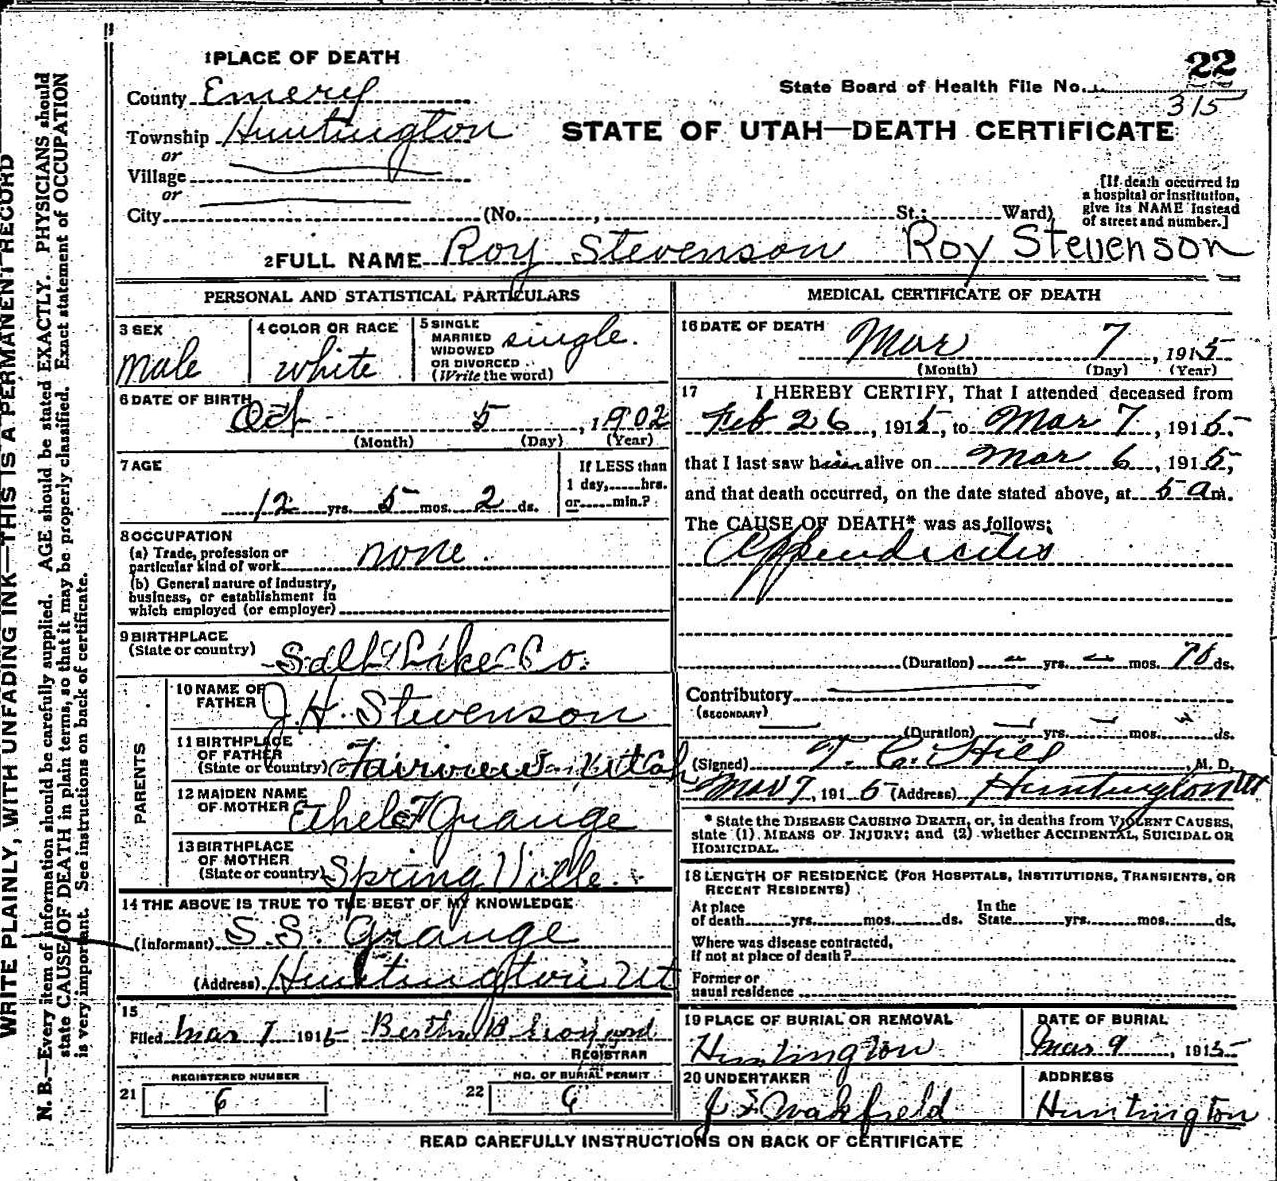 1 PLACE OF DEATH
22
County Emery
State Board of Health File No. 315
Township Huntington
STATE OF UTAH—DEATH CERTIFICATE
or
Village
or
City (No. , St.; Ward)
[If death occurred in a hospital or institution, give its NAME instead of street and number.]
2 FULL NAME Roy Stevenson Roy Stevenson
PERSONAL AND STATISTICAL PARTICULARS
3 SEX
male
4 COLOR OR RACE
white
5 SINGLE
MARRIED
WIDOWED
OR DIVORCED
(Write the word)
single.
6 DATE OF BIRTH
Oct 5, 1902
(Month) (Day) (Year)
7 AGE
12 yrs. 5 mos. 2 ds.
If LESS than
1 day, hrs.
or min.?
8 OCCUPATION
(a) Trade, profession or
particular kind of work none.
(b) General nature of industry,
business, or establishment in
which employed (or employer)
9 BIRTHPLACE
(State or country) Salt Lake Co.
PARENTS
10 NAME OF
FATHER J. H. Stevenson
11 BIRTHPLACE
OF FATHER
(State or country) Fairview Utah
12 MAIDEN NAME
OF MOTHER Ethel Grange
13 BIRTHPLACE
OF MOTHER
(State or country) Spring Ville.
14 THE ABOVE IS TRUE TO THE BEST OF MY KNOWLEDGE
(Informant) S. S. Grange
(Address) Huntington. Ut
15
Filed Mar 7 1915 Bertha B
REGISTRAR
REGISTERED NUMBER
21 6
NO. OF BURIAL PERMIT
22 6
MEDICAL CERTIFICATE OF DEATH
16 DATE OF DEATH
Mar 7, 1915
(Month) (Day) (Year)
17 I HEREBY CERTIFY, That I attended deceased from
Feb 26, 1915, to Mar 7, 1915.
that I last saw him alive on Mar 6, 1915,
and that death occurred, on the date stated above, at 5 am.
The CAUSE OF DEATH* was as follows:
Appendicitis
(Duration) yrs. mos. 10 ds.
Contributory
(SECONDARY)
(Duration) yrs. mos. ds.
(Signed) T. C. Hill, M. D.
Mar 7, 1915 (Address) Huntington Ut
* State the DISEASE CAUSING DEATH, or, in deaths from VIOLENT CAUSES,
state (1) MEANS OF INJURY; and (2) whether ACCIDENTAL, SUICIDAL OR
HOMICIDAL.
18 LENGTH OF RESIDENCE (FOR HOSPITALS, INSTITUTIONS, TRANSIENTS, OR
RECENT RESIDENTS)
At place
of death yrs. mos. ds.
In the
State yrs. mos. ds.
Where was disease contracted,
if not at place of death?
Former or
usual residence
19 PLACE OF BURIAL OR REMOVAL
Huntington
DATE OF BURIAL
Mar 9, 1915
20 UNDERTAKER
Wakfield
ADDRESS
Huntington
READ CAREFULLY INSTRUCTIONS ON BACK OF CERTIFICATE
WRITE PLAINLY, WITH UNFADING INK—THIS IS A PERMANENT RECORD
N. B.—Every item of information should be carefully supplied. AGE should be stated EXACTLY. PHYSICIANS should
state CAUSE OF DEATH in plain terms, so that it may be properly classified. Exact statement of OCCUPATION
is very important. See instructions on back of certificate.